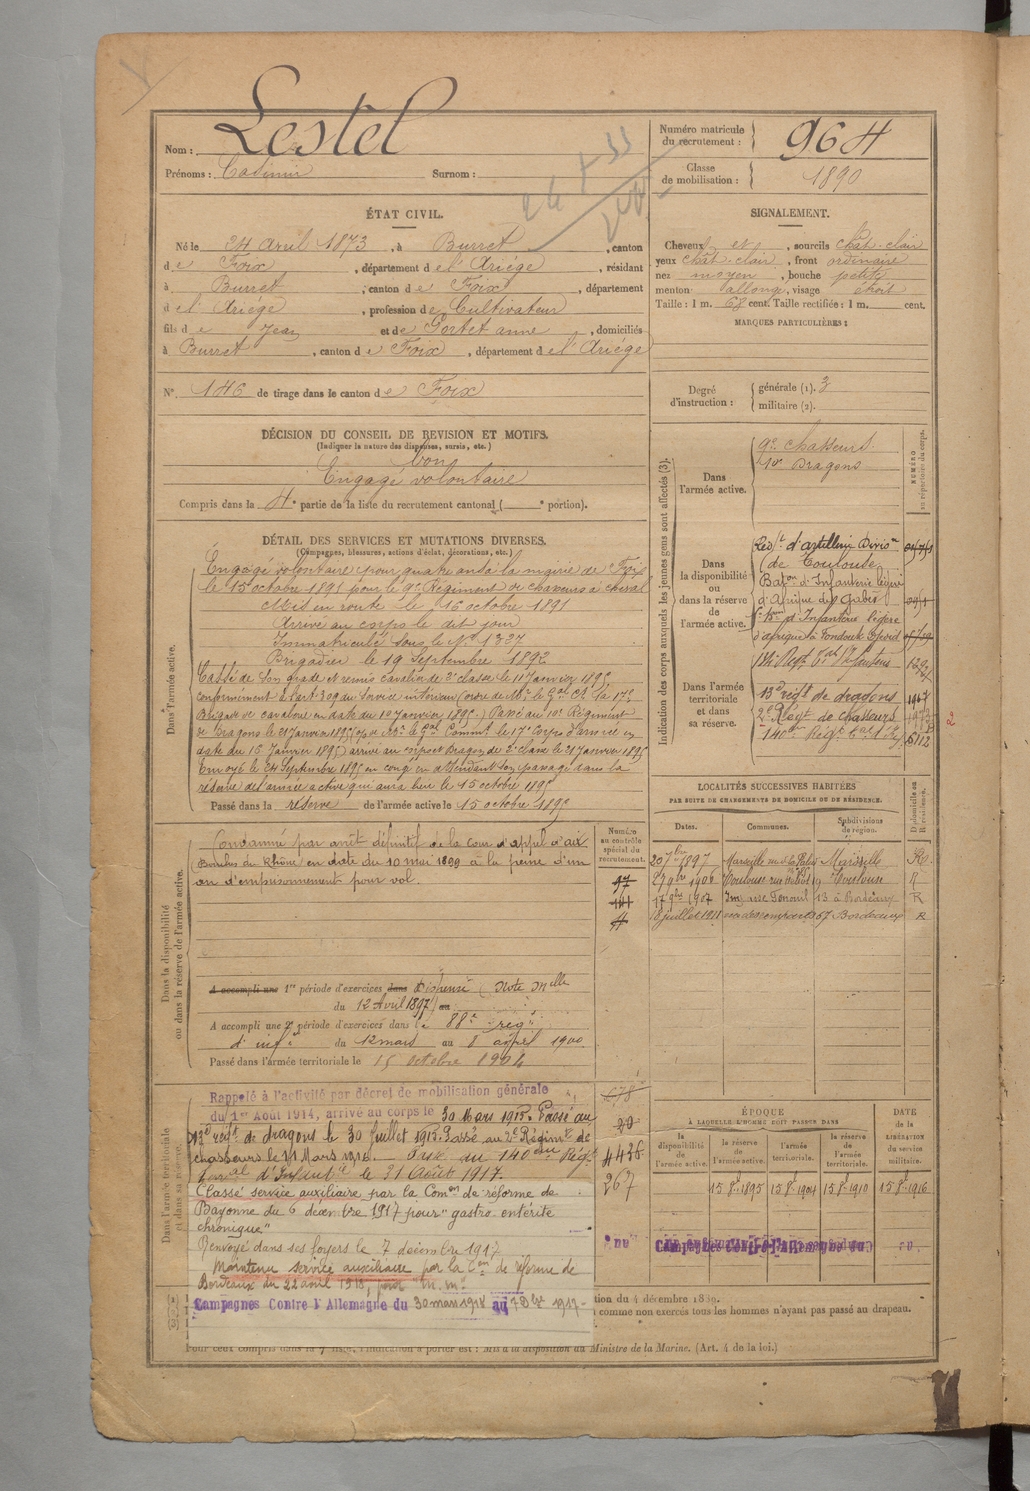 Nom : Lestel
Prénoms : Casimir Surnom :
Numéro matricule du recrutement : 964
Classe de mobilisation : 1890
ÉTAT CIVIL.
Né le 24 Avril 1873, à Burret, canton
de Foix, département de l'Ariège, résidant
à Burret, canton de Foix, département
de l'Ariège, profession de Cultivateur
fils de Jean et de Portet anne, domiciliés
à Burret, canton de Foix, département de l'Ariège
N° 146 de tirage dans le canton de Foix
SIGNALEMENT.
Cheveux et, sourcils chat-clair
yeux chat-clair, front ordinaire
nez moyen, bouche petite
menton allongé, visage étroit
Taille : 1 m. 68 cent. Taille rectifiée : 1 m. cent.
MARQUES PARTICULIÈRES :
Degré d'instruction : générale (1). 3
militaire (2).
DÉCISION DU CONSEIL DE REVISION ET MOTIFS.
(Indiquer la nature des dispenses, sursis, etc.)
bon
Engagé volontaire
Compris dans la 4e partie de la liste du recrutement cantonal ( e portion).
DÉTAIL DES SERVICES ET MUTATIONS DIVERSES.
(Campagnes, blessures, actions d'éclat, décorations, etc.)
Dans l'armée active.
Engagé volontaire pour quatre ans à la mairie de Foix
le 15 octobre 1891 pour le 9e Régiment de chasseurs à cheval
Mis en route le 16 octobre 1891
Arrivé au corps le dit jour
Immatriculé sous le N° 1327
Brigadier le 19 Septembre 1892
Cassé de son grade et remis cavalier de 2e classe le 11 Janvier 1895
conformément à l'art 309 du Service intérieur (ordre de Mr le Gal Ct la 17e
Brigade de cavalerie en date du 10 Janvier 1895.) Passé au 10e Régiment
de Dragons le 21 Janvier 1895 de Mr le Gal Commt le 17e Corps d'armée en
date du 16 Janvier 1895) arrivé au corps et Dragon de 2e classe le 21 Janvier 1895
Envoyé le 24 Septembre 1895 en congé en attendant son passage dans la
réserve de l'armée active qui aura lieu le 15 octobre 1895
Passé dans la réserve de l'armée active le 15 octobre 1895
Indication des corps auxquels les jeunes gens sont affectés (3).
NUMÉRO au répertoire du corps.
Dans l'armée active.
9e chasseurs
10e Dragons
Dans la disponibilité ou dans la réserve de l'armée active.
d'artillerie Divisre
(de Toulouse)
Baton d'Infanterie légère
d'Afrique de Gabès
d'Infanterie légère
d'afrique à
Dans l'armée territoriale et dans sa réserve.
13e régt de dragons
2e Régt de chasseurs
140e Régt
Dans la disponibilité ou dans la réserve de l'armée active.
Condamné par arrêt définitif de la cour d'appel d'aix
Bouches du Rhône en date du 10 mai 1899 à la peine d'un
an d'emprisonnement pour vol.
A accompli une 1re période d'exercices dans Dispensé (Note Mlle
du 12 Avril 1897) au
A accompli une 2e période d'exercices dans le 88e régt
d'infie du 12 mars au 8 avril 1900
Passé dans l'armée territoriale le 15 octobre 1904
Numéro au contrôle spécial du recrutement.
97
141
4
LOCALITÉS SUCCESSIVES HABITÉES
PAR SUITE DE CHANGEMENTS DE DOMICILE OU DE RÉSIDENCE.
Dates. Communes. Subdivisions de région. D domicile ou R résidence.
20 7bre 1897 Marseille Marseille R.
27 9bre 1900 Toulouse Toulouse R
17 9bre 1907 Impasse 13 à Bordeaux R
8 juillet 1911 67 Bordeaux R
Dans l'armée territoriale et dans sa réserve.
Rappelé à l'activité par décret de mobilisation générale
du 1er Août 1914, arrivé au corps le 30 Mars 1915. Passé au
13e régt de dragons le 30 Juillet 1915. Passé au 2e Régimt de
chasseurs le 11 Mars 1916. au 140eme Régt
d'Infantie le 31 Août 1917.
Classé service auxiliaire par la Comon de réforme de
Bayonne du 6 décembre 1917 pour "gastro-entérite
chronique"
Renvoyé dans ses foyers le 7 décembre 1917
Maintenu service auxiliaire par la Con de réforme de
Bordeaux du 22 avril 1918, pour "m. m."
Campagnes Contre l'Allemagne du 30 mars 1915 au 7 Dbre 1917
678
4436
267
ÉPOQUE
A LAQUELLE L'HOMME DOIT PASSER DANS
la disponibilité de l'armée active. la réserve de l'armée active. l'armée territoriale. la réserve de l'armée territoriale.
DATE DE LA LIBÉRATION du service militaire.
15 8bre 1895 15 8bre 1904 15 8bre 1910 15 8bre 1916
tion du 4 décembre 1889.
comme non exercés tous les hommes n'ayant pas passé au drapeau.
Pour ceux compris dans la 7e liste, l'indication à porter est : Mis à la disposition du Ministre de la Marine. (Art. 4 de la loi.)